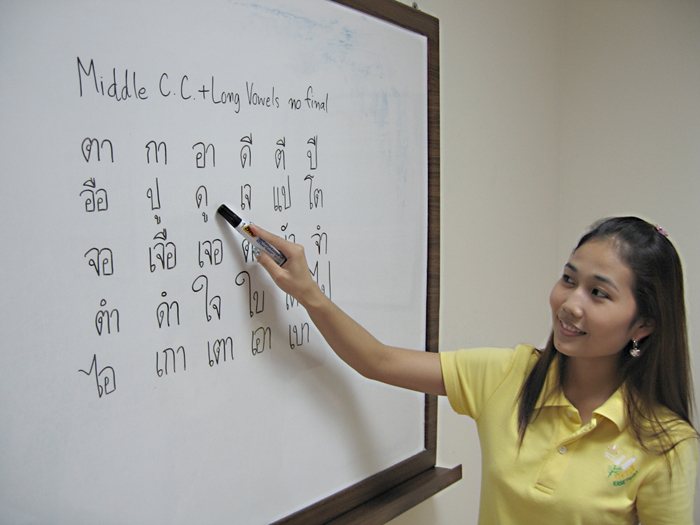 Middle C.C.+Long Vowels no final
ตา กา อา ดี ตี ปี
อือ ปู ดู เจ แป โต
จอ เจือ เจอ จำ
ตำ ดำ ใจ ใบ ไป
ไอ เกา เตา เอา เบา